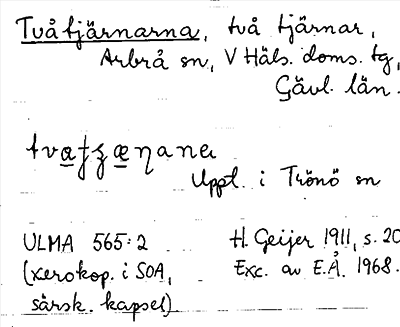 Tvåtjärnarna, två tjärnar,
Arbrå sn, V Häls. doms. tg,
Gävl. län.
Uppt. i Trönö sn
ULMA 565:2
(xerokop. i SOA,
särsk. kapsel)
H. Geijer 1911, s. 20
Exc. av E.Å. 1968.